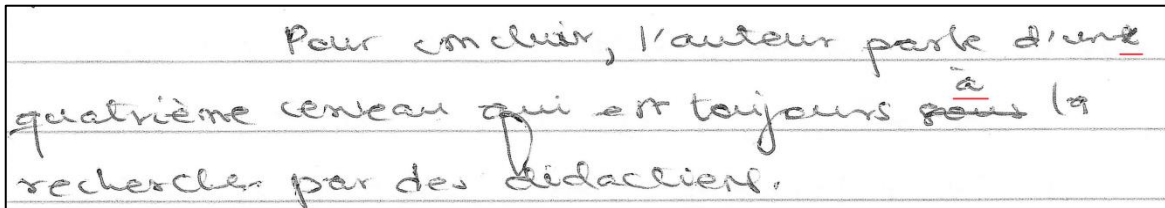 Pour concluir, l'auteur parle d'un
quatrième cerveau qui est toujours à la
recherche par des didacliens.